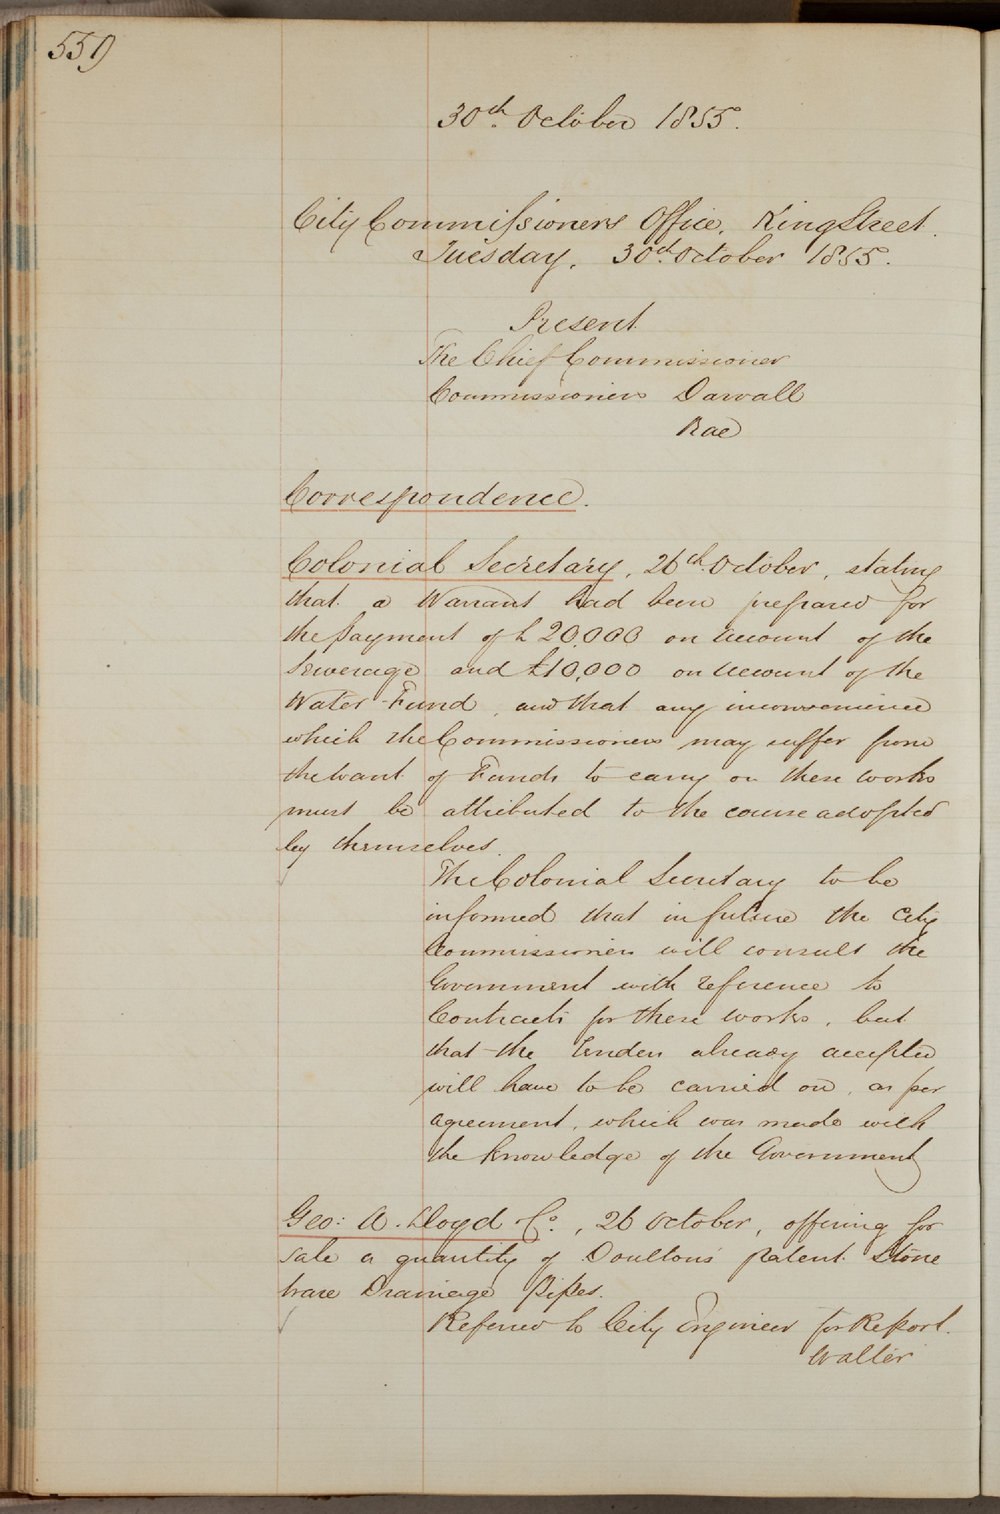 559
30th October 1855.
City Commissioners Office, King Street.
Tuesday, 30th October 1855.
Present
The Chief Commissioner
Commissioners Darvall
Rae
Correspondence.
Colonial Secretary, 26th October, stating
that a Warrant had been prepared for
the payment of £20,000 on account of the
Sewerage and £10,000 on account of the
Water Fund, and that any inconvenience
which the Commissioners may suffer from
the want of Funds to carry on these works
must be attributed to the course adopted
by themselves.
The Colonial Secretary to be
informed that in future the City
Commissioners will consult the
Government with reference to
Contracts for these works, but
that the Tenders already accepted
will have to be carried on, as per
agreement, which was made with
the knowledge of the Government
Geo: A. Lloyd & Co., 26 October, offering for
sale a quantity of Doulton's patent Stone
ware Drainage Pipes.
Referred to City Engineer for Report.
Walter